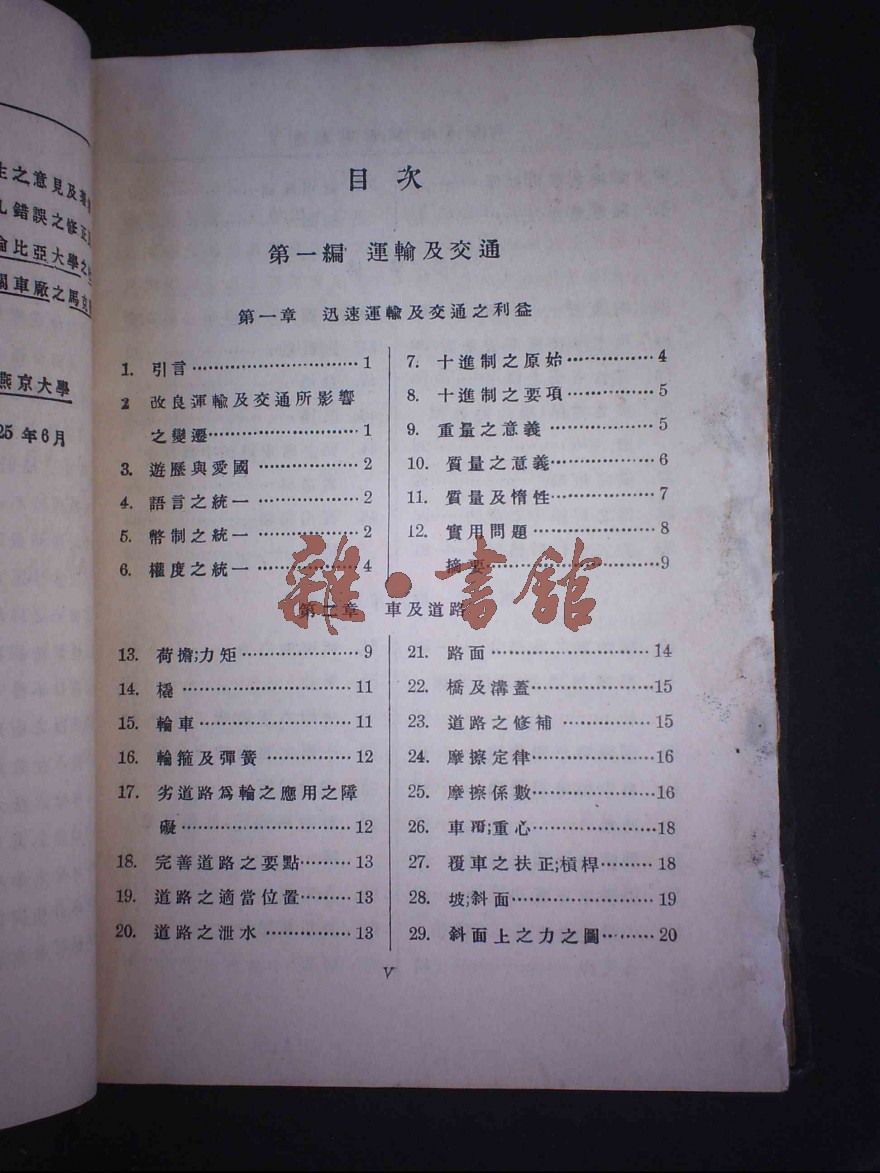 生之意見及
錯誤之修正
比亞大學之
車廠之馬克
燕京大學
25 年6月
目次
第一編 運輸及交通
第一章 迅速運輸及交通之利益
1. 引言……………………………1
2 改良運輸及交通所影響
之變遷………………………1
3. 遊歷與愛國………………2
4. 語言之統一………………2
5. 幣制之統一………………2
6. 權度之統一………………4
7. 十進制之原始……………4
8. 十進制之要項……………5
9. 重量之意義………………5
10. 質量之意義………………6
11. 質量及惰性………………7
12. 實用問題…………………8
摘要…………………………9
雜·書館
第二章 車及道路
13. 荷擔;力矩…………………9
14. 橇…………………………11
15. 輪車………………………11
16. 輪箍及彈簧……………12
17. 劣道路爲輪之應用之障
礙…………………………12
18. 完善道路之要點………13
19. 道路之適當位置………13
20. 道路之泄水……………13
21. 路面………………………14
22. 橋及溝蓋…………………15
23. 道路之修補……………15
24. 摩擦定律…………………16
25. 摩擦係數…………………16
26. 車覆;重心…………………18
27. 覆車之扶正;槓桿………18
28. 坡;斜面……………………19
29. 斜面上之力之圖………20
V